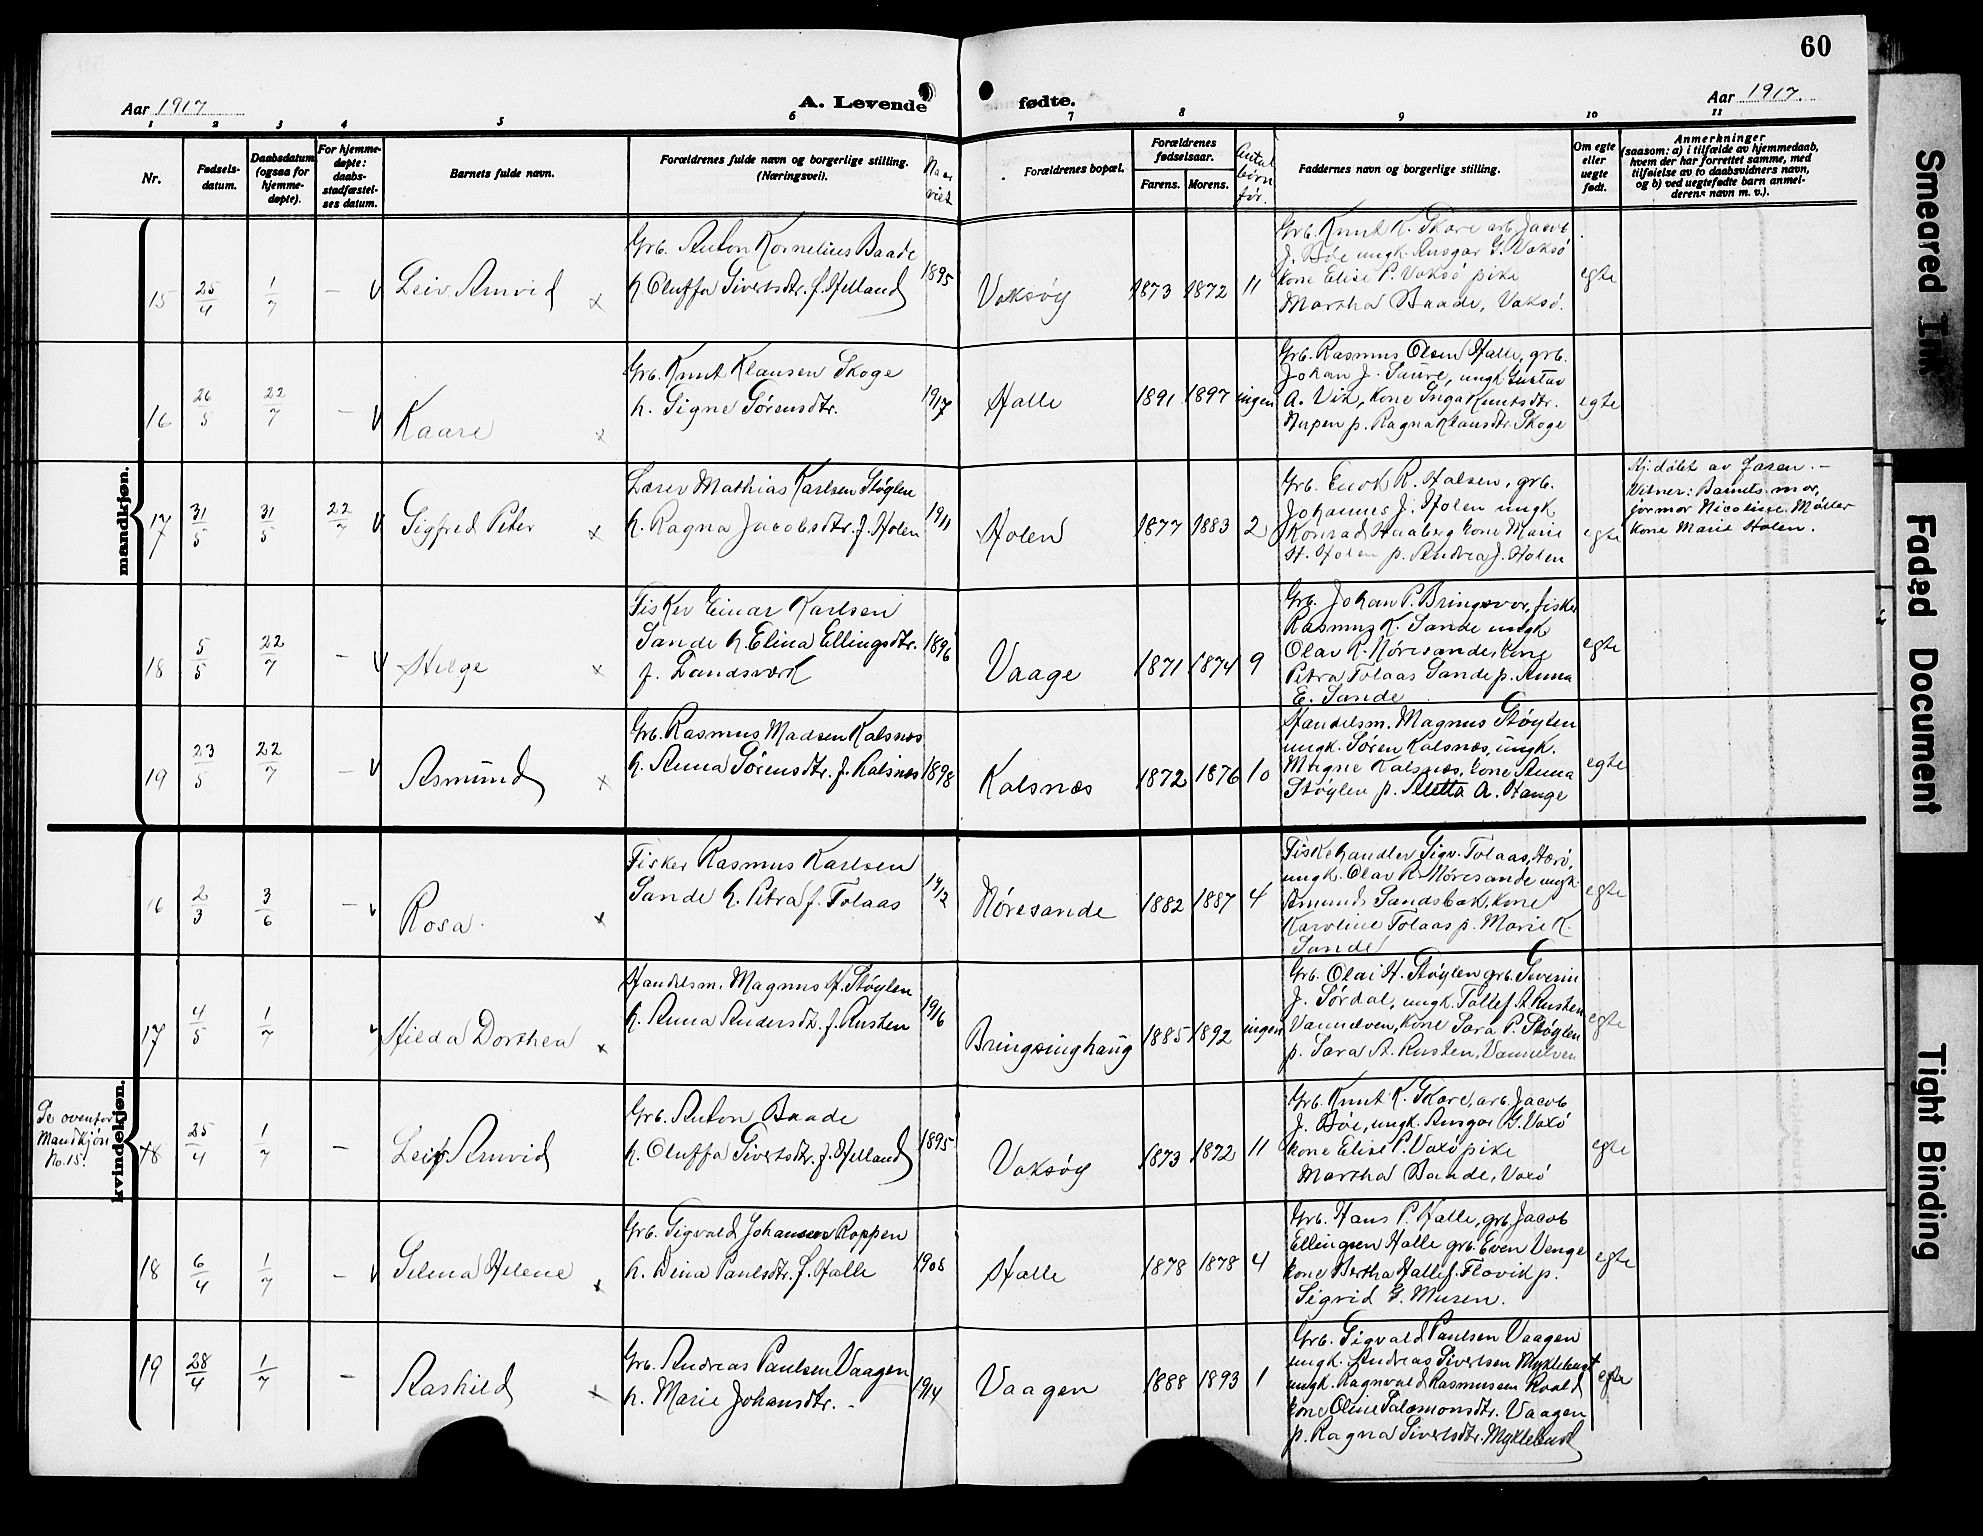 60
Aar 1917
A. Levende
fødte.
Aar 1917.
1 2 3 4 5 6 7 8 9 10 11
Nr.
Fødsels-
datum.
Daabsdatum
(ogsaa for
hjemme-
døpte).
For hjemme-
døpte:
daabs-
stadfæstel-
ses datum.
Barnets fulde navn.
Forældrenes fulde navn og borgerlige stilling.
(Næringsvei).
Naar
viet
Forældrenes bopæl.
Forældrenes
fødselsaar.
Farens.
Morens.
Antal
børn
før.
Faddernes navn og borgerlige stilling.
Om egte
eller
uegte
født.
Anmerkninger
(saasom: a) i tilfælde av hjemmedaab,
hvem der har forrettet samme, med
tilføielse av to daabsvidners navn,
og b) ved uegtefødte barn anmel-
derens navn m. v.).
mandkjøn.
15 25/4 1/7 – Leiv Arnvid x
Grb. Anton Kornelius Baade
h. Oluffa Sivertsdtr. f. Helland
1895
Vaksøy 1873 1872 11
Grb. Knut K. Skare arb. Jacob
J. Bøe ungk. Ansgar G. Vaksø
kone Elise P. Vaksø pike
Martha Baade, Vaksø.
egte
16 26/5 22/7 – Kaare x
Grb. Knut Klausen Skoge
h. Signe Sørensdtr.
1917
Halle 1891 1897 ingen
Grb. Rasmus Olsen Halle, grb.
Johan J. Saure, ungk. Gustav
A. Vik, kone Inga Knutsdtr.
Nupen p. Ragna Klausdtr. Skoge
egte
17 31/5 31/5 22/7 Sigfred Peter x
Lærer Mathias Karlsen Støylen
h. Ragna Jacobsdtr. f. Holen
1911
Holen 1877 1883 2
Grb. Enok R. Halsen, grb.
Johannes J. Holen ungk
Konrad Haaberg kone Marie
H. Holen p. Andrea J. Holen
egte
Hj. døbt av faren. –
Vitner: Barnets mor,
jormor Nicoline Møller
kone Marie Holen.
18 5/5 22/7 – Helge x
Fisker Einar Karlsen
Sande h. Elina Ellingsdtr.
f. Landsverk
1896
Vaage 1871 1874 9
Grb. Johan P. Bringsvor, fisker
Rasmus K. Sande ungk
Olav R. Nøresande, kone
Petra Tolaas Sande p. Anna
E. Sande
egte
19 23/5 22/7 – Asmund x
Grb. Rasmus Madsen Kalsnes
h. Anna Sørensdtr. f. Kalsnes
1898
Kalsnæs 1872 1876 10
Handelsm. Magnus Støylen
ungk. Søren Kalsnæs, ungk.
Magne Kalsnæs, kone Anna
Støylen p. Aletta A. Hauge
egte
kvindekjøn.
16 2/3 3/6 – Rosa. x
Fisker Rasmus Karlsen
Sande h. Petra f. Tolaas
Nøresande 1882 1887 4
Fiskehandler Sigv. Tolaas, Herø,
ungk. Olav R. Nøresande ungk.
Amund Sandsbak, kone
Karoline Tolaas p. Marie K.
Sande
egte
17 4/5 1/7 Hilda Dorthea x
Handelsm. Magnus H. Støylen
h. Anna Andersdtr. f. Rusten
1916
Bringsinghaug 1885 1892 ingen
Grb. Olai H. Støylen grb. Severin
J. Sørdal, ungk. Tollef A. Rusten
Vannelven, kone Sara P. Støylen
p. Sara A. Rusten, Vannelven
egte
Se ovenfor
Mandkjøn
No. 15.
18 25/4 1/7 – Leif Arnvid
Grb. Anton Baade
h. Oluffa Sivertsdtr. f. Helland
1895
Vaksøy 1873 1872 11
Grb. Knut K. Skare, arb. Jacob
J. Bøe, ungk. Ansgar G. Vaxø
kone Elise P. Vaxø pike
Martha Baade, Vaxø
egte
18 6/4 1/7 – Selma Helene x
Grb. Sigvald Johansen Roppen
h. Dina Paulsdtr. f. Halle
1908
Halle 1878 1878 4
Grb. Hans P. Halle, grb. Jacob
Ellingsen Halle grb. Even Venge
kone Bertha Halle f. Flovik p.
Sigrid G. Muren.
egte
19 28/4 1/7 – Raghild x
Grb. Andreas Paulsen Vaagen
h. Marie Johansdtr. –
1914
Vaagen 1888 1893 1
Grb. Sigvald Paulsen Vaagen
ungk. Andreas Sivertsen Myklebust
ungk. Ragnvald Rasmussen Roald
kone Oline Salomonsdtr. Vaagen
p. Ragna Sivertsdtr. Myklebust
egte
Smeared Ink
Faded Document
Tight Binding